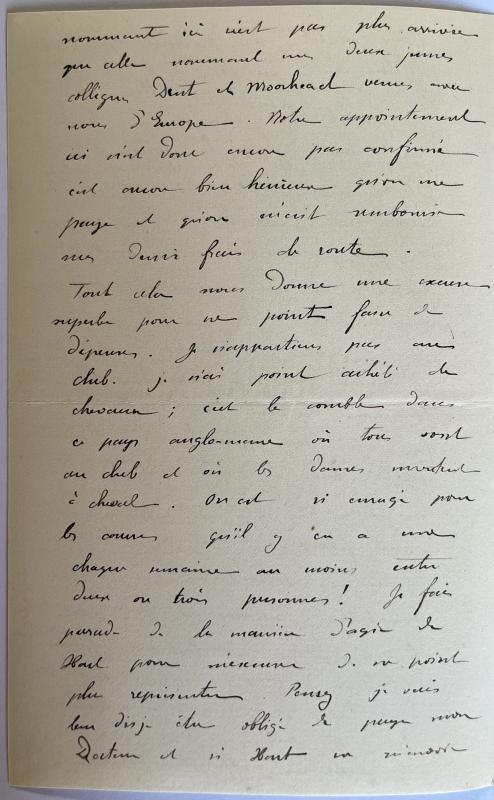 nommant ici n'est pas plus arrivée
que celle nommant mes deux jeunes
collègues Dent et Moorhead venus avec
nous d'Europe. Notre appointement
ici n'est donc encore pas confirmé
c'est encore bien heureux qu'on me
paye et qu'on m'ait remboursé
mes demis frais de route.
Tout cela nous donne une excuse
superbe pour ne point faire de
dépenses. Je n'appartiens pas au
club. je n'ai point acheté de
chevaux ; c'est le comble dans
ce pays anglo-mane où tous sont
au club et où les dames montent
à cheval. On est si enragé pour
les courses qu'il y en a une
chaque semaine au moins entre
deux ou trois personnes ! Je fais
parade de la manière d'agir de
Hart pour m'excuser de ne point
plus représenter. Pensez je vais
leur dis-je être obligé de payer mon
Docteur et si Hart me